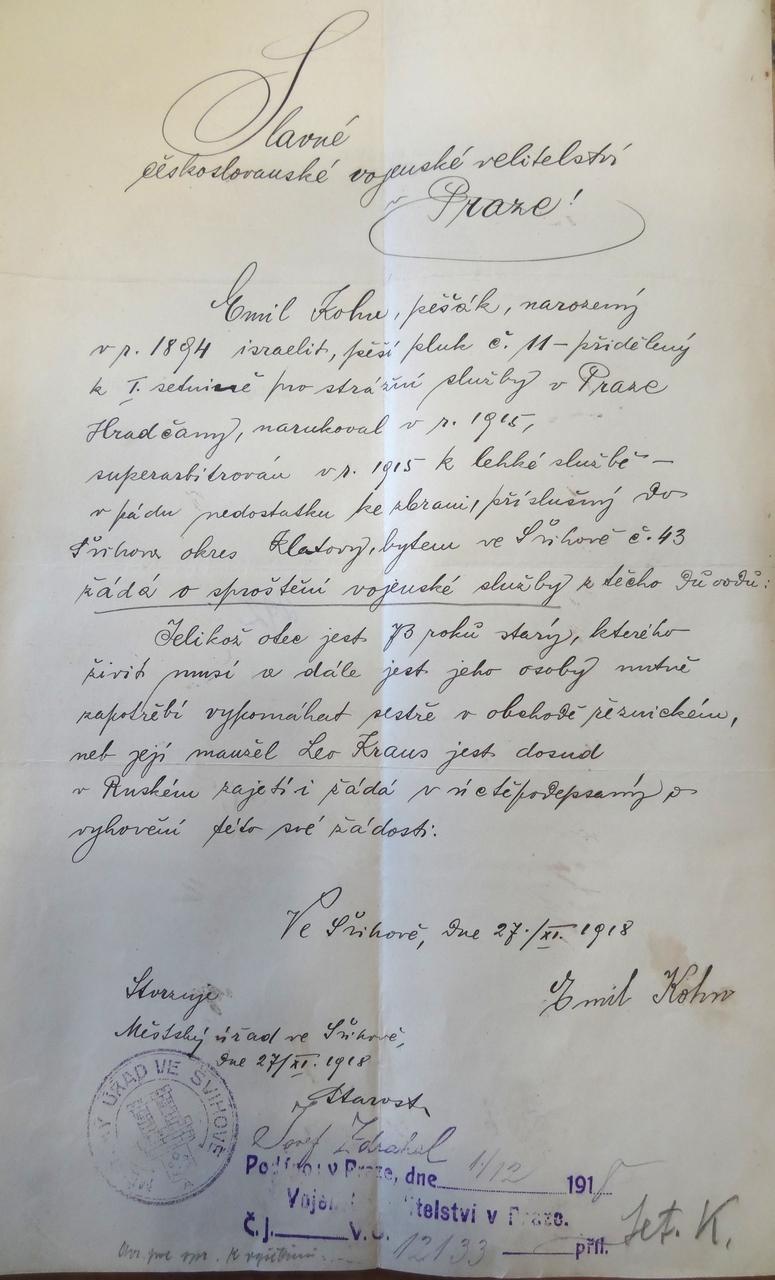 Slavné
českoslovanské vojenské velitelství
v Praze!
Emil Kohn, pěšák, narozený
v r. 1894 israelit, pěší pluk č. 11 – přidělený
k I. setnině pro strážní služby v Praze
Hradčany, narukoval v r. 1915,
superarbitrován v r. 1915 k lehké službě –
v pádu nedostatku ke zbrani, příslušný do
Švihova okres Klatovy, bytem ve Švihově č. 43
žádá o sproštění vojenské služby z těcho důvodů:
Jelikož otec jest 73 roků starý, kterého
živit musí a dále jest jeho osoby nutně
zapotřebí vypomáhat sestře v obchodě řeznickém,
neb její manžel Leo Kraus jest dosud
v Ruském zajetí i žádá v úctě podepsaný o
vyhovění této své žádosti.
Ve Švihově, dne 27./XI. 1918
Emil Kohn
Stvrzuje
Městský úřad ve Švihově,
dne 27/XI. 1918
Starosta
Josef Zdráhal
Ý ÚŘAD VE ŠVIHOVĚ
Podáno: v Praze, dne 1/12 1918
velitelství v Praze.
Č.j. 12133 příl.
K.